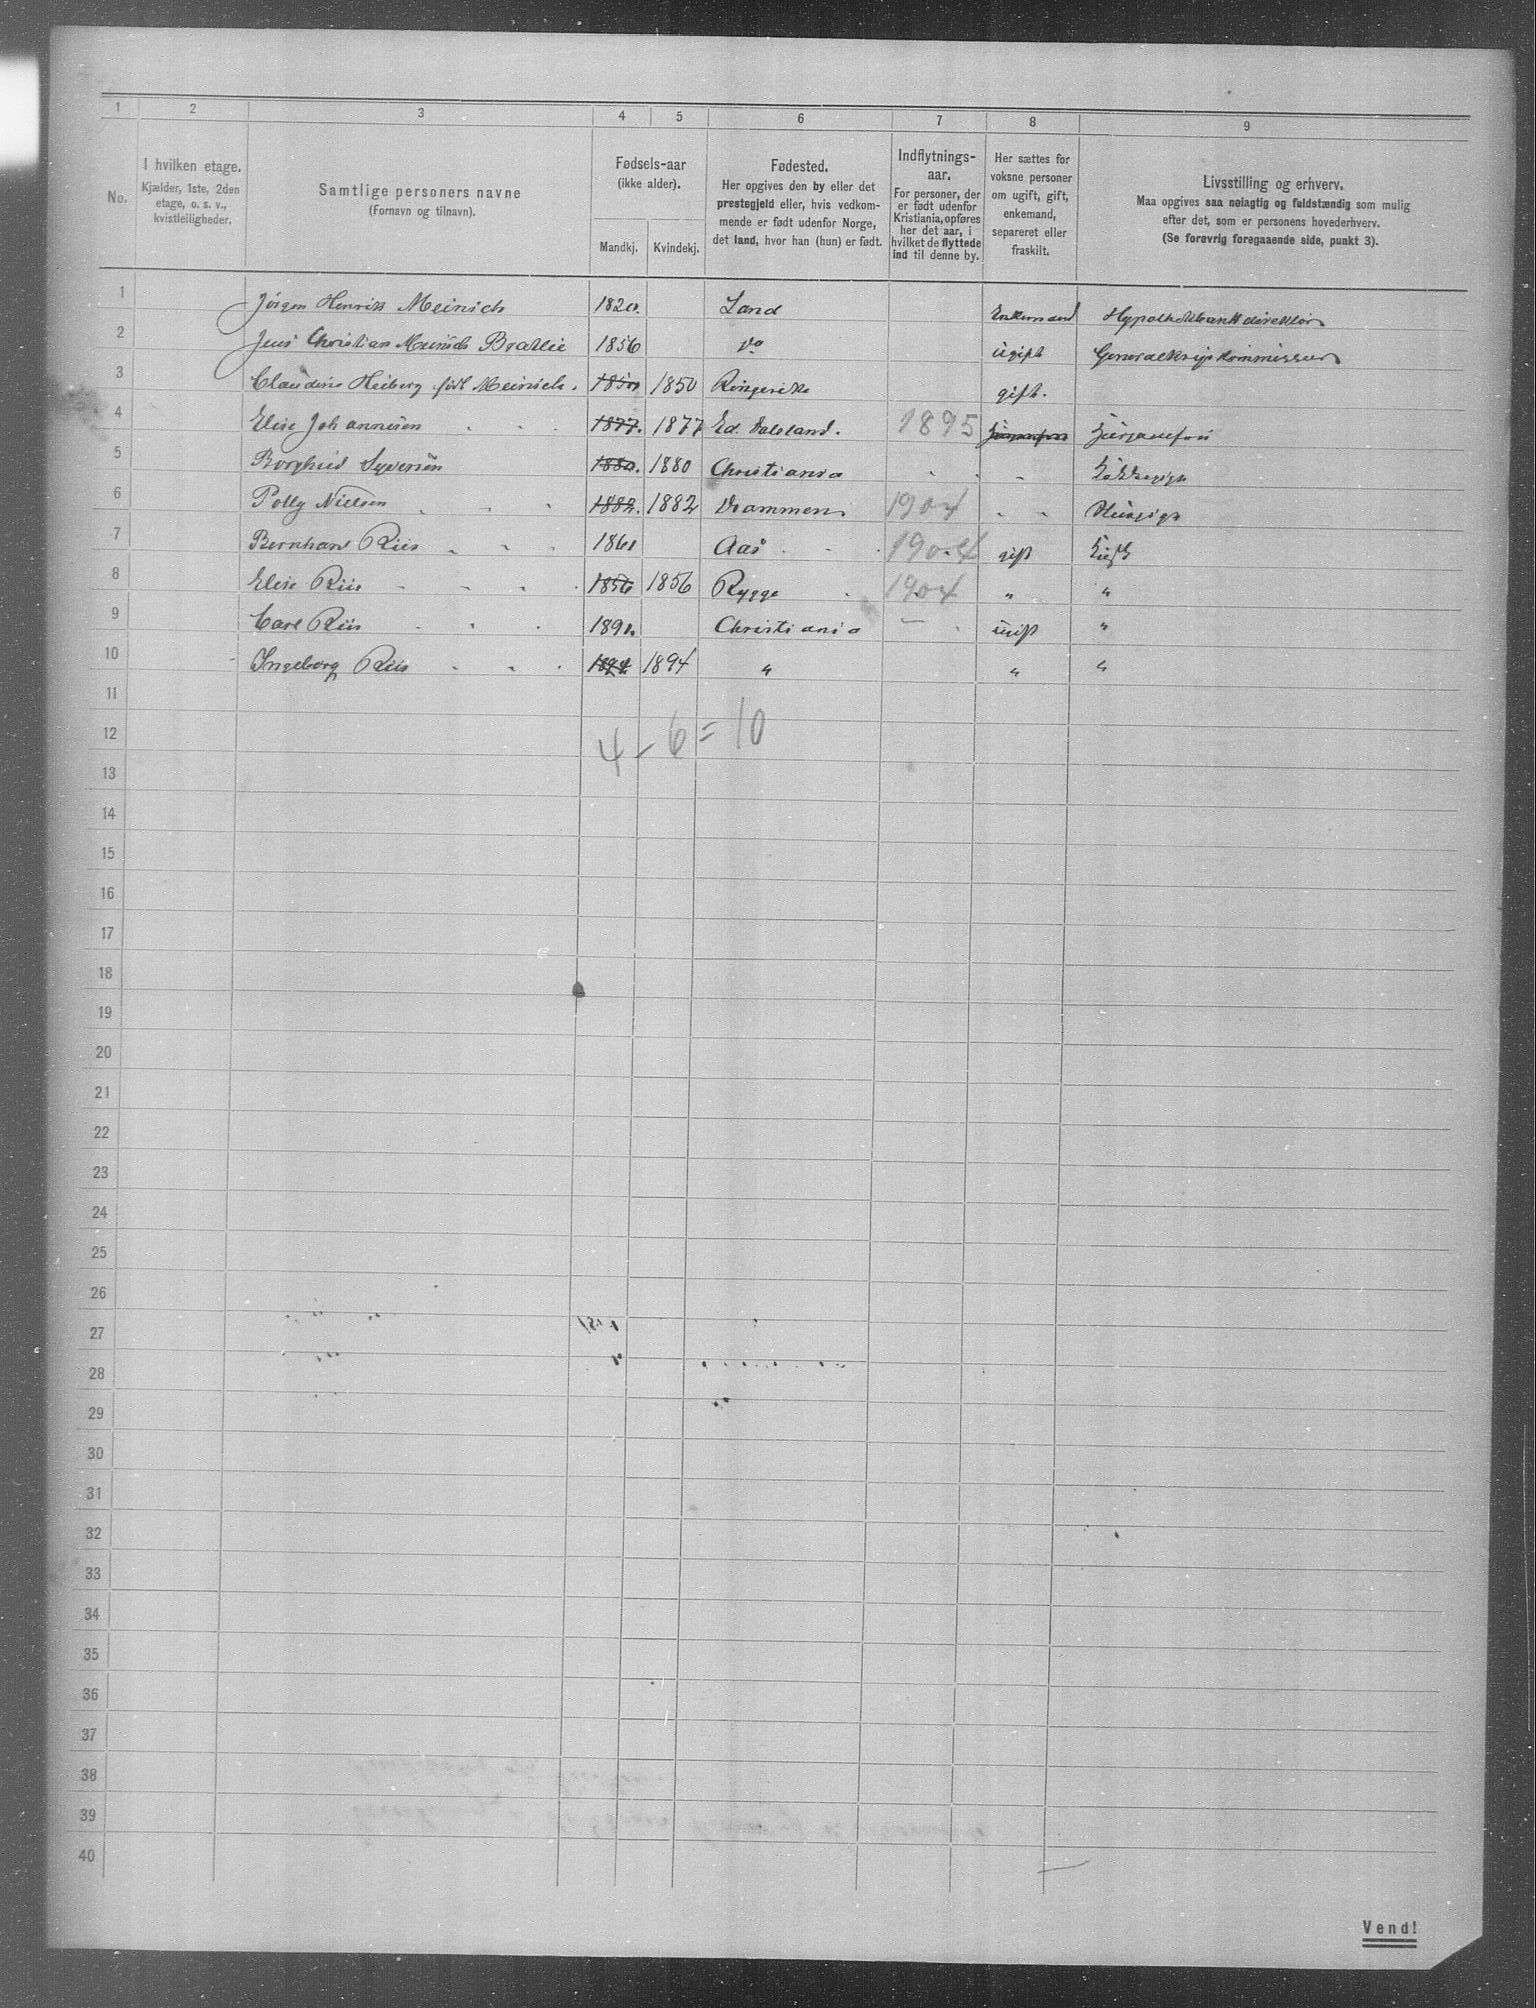 1 2 3 4 5 6 7 8 9
No.
I hvilken etage.
Kjælder, 1ste, 2den
etage, o. s. v.,
kvistleiligheder.
Samtlige personers navne
(Fornavn og tilnavn).
Fødsels-aar
(ikke alder).
Mandkj. Kvindekj.
Fødested.
Her opgives den by eller det
prestegjeld eller, hvis vedkom-
mende er født udenfor Norge,
det land, hvor han (hun) er født.
Indflytnings-
aar.
For personer, der
er født udenfor
Kristiania, opføres
her det aar, i
hvilket de flyttede
ind til denne by.
Her sættes for
voksne personer
om ugift, gift,
enkemand,
separeret eller
fraskilt.
Livsstilling og erhverv.
Maa opgives saa nøiagtig og fuldstændig som mulig
efter det, som er personens hovederhverv.
(Se forøvrig foregaaende side, punkt 3).
1 Jörgen Henrik Meinich 1820. Land Enkemand Hypothekbankdirektör
2 Jens Christian Meinich Bratlie 1856 do ugift Generalkrigskommissær
3 Claudine Heiberg født Meinich. 1850 1850 Ringerike gift.
4 Elise Johannesen 1877. 1877 Ed. Dalsland. 1895
5 Borghild Syversen 1880. 1880 Christiania Kokkepige
6 Polly Nielsen 1882. 1882 Drammen 1904 Huspige
7 Bernhard Riis 1861 Aas 1904 gift Kusk
8 Elise Riis 1856 1856 Rygge 1904 " "
9 Carl Riis 1891. Christiania — ugift "
10 Ingeborg Riis 1894 1894 " " "
11
12 4 - 6 = 10
13
14
15
16
17
18
19
20
21
22
23
24
25
26
27
28
29
30
31
32
33
34
35
36
37
38
39
40
Vend!